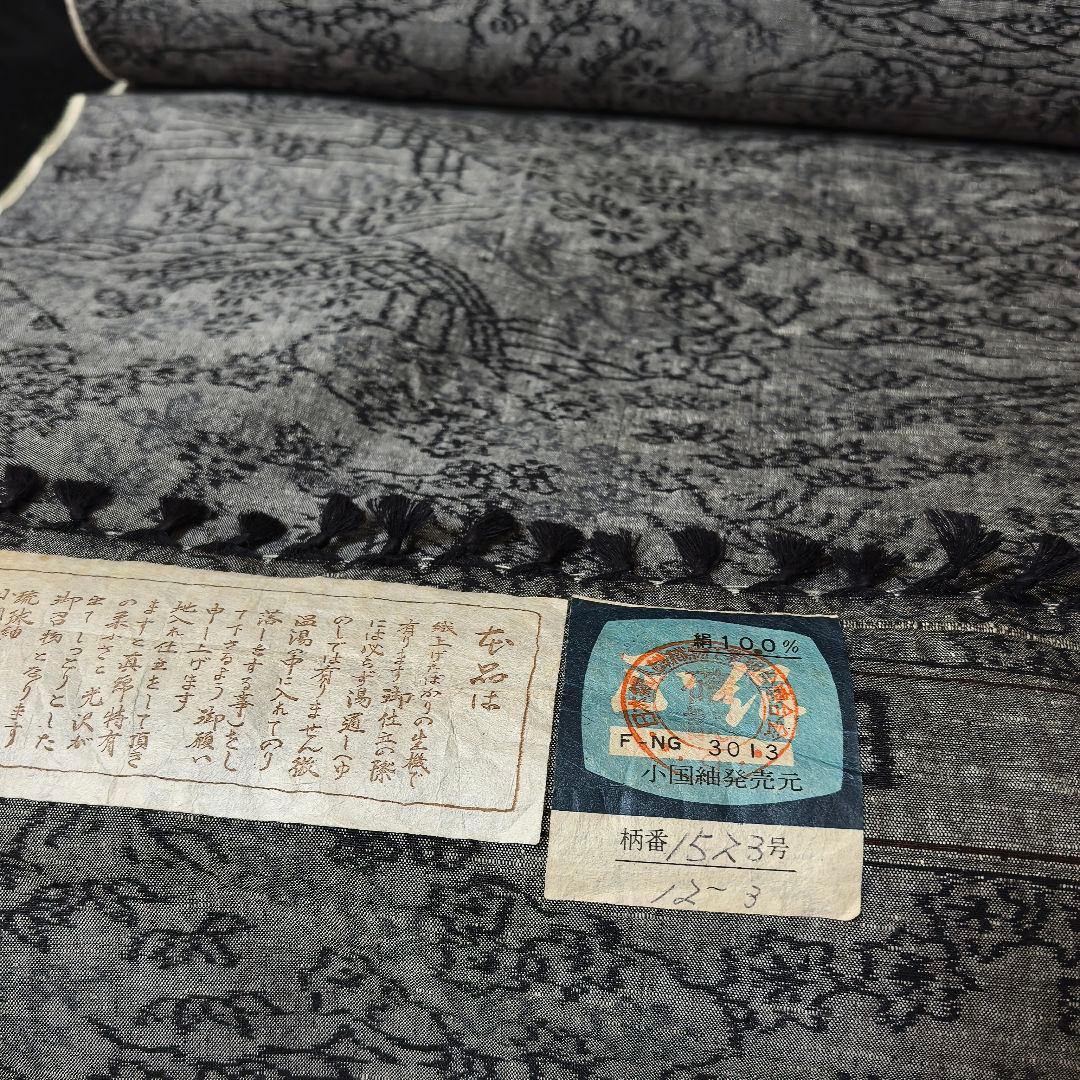 本品は
織上げたばかりの生機で
有ります御仕立の際
には必らず湯通し(ゆ
のし)では有りません微
温湯の中に入れてのり
落しをする事)をし
て下さるよう御願い
申し上げます
地入れ仕立をして頂き
ますと真綿特有
の柔かさと光沢が
出てしっとりとした
御召物となります
絹100%
F-NG 3013
小国紬発売元
柄番1523号
12-3